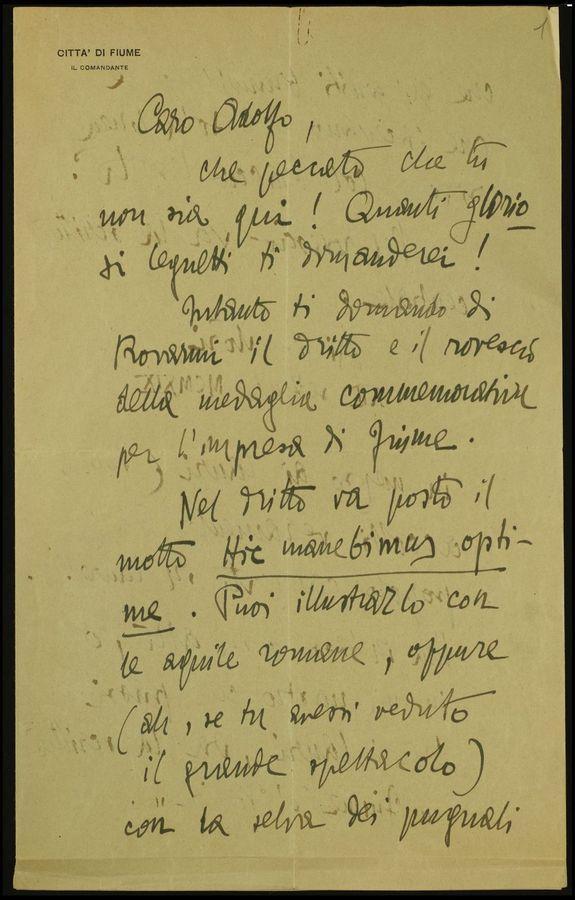 1
CITTA' DI FIUME
IL COMANDANTE
Caro Adolfo,
che peccato che tu
non sia qui! Quanti glorio
si legnetti ti domanderei!
Intanto ti domando di
Rovarmi il dritto e il rovescio
della medaglia commemorativa
per l'impresa di Fiume.
Nel dritto va posto il
motto Hic manebimus opti-
me. Puoi illustrarlo con
le aquile romane, oppure
(ah, se tu avessi veduto
il grande spettacolo)
con la selva dei pugnali